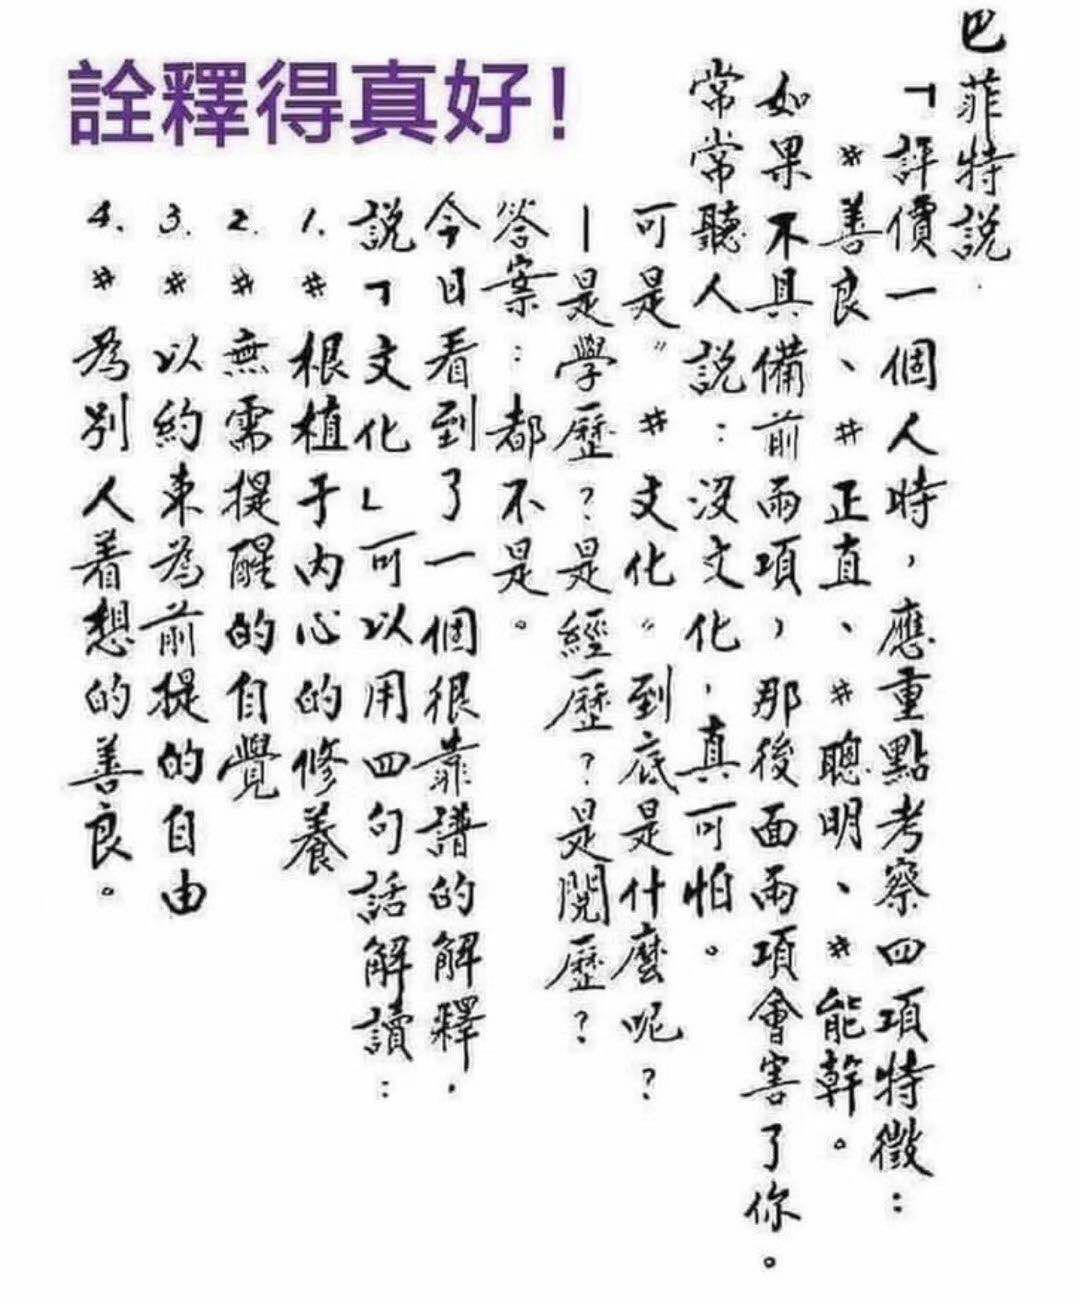 詮釋得真好!
巴菲特說
「評價一個人時，應重點考察四項特徵：
#善良、#正直、#聰明、#能幹。
如果不具備前兩項，那後面兩項會害了你。
常常聽人說：沒文化，真可怕。
可是“#文化”到底是什麼呢？
—是學歷？是經歷？是閱歷？
答案：都不是。
今日看到了一個很靠譜的解釋，
說「文化」可以用四句話解讀：
1. #根植于內心的修養
2. #無需提醒的自覺
3. #以約束為前提的自由
4. #為別人着想的善良。